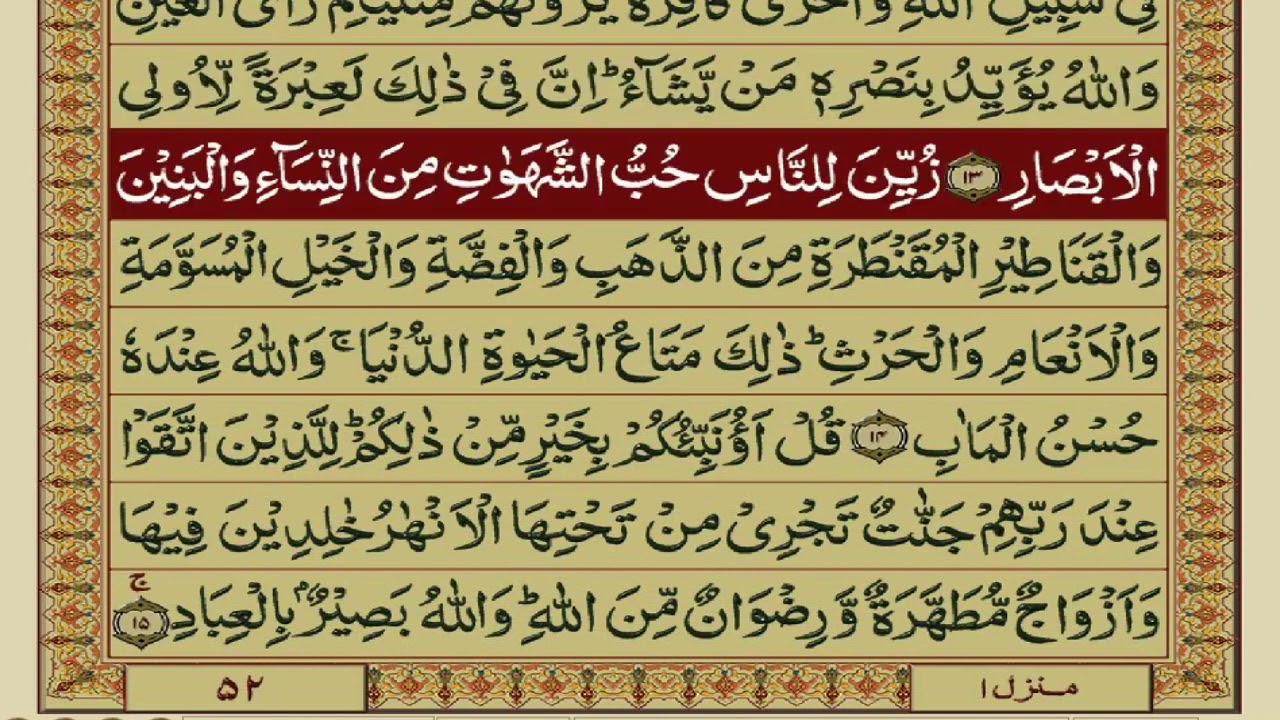 فِیْ سَبِیْلِ اللّٰهِ وَاُخْرٰی كَافِرَةٌ یَّرَوْنَهُمْ مِّثْلَیْهِمْ رَاْیَ الْعَیْنِ
وَاللّٰهُ یُؤَیِّدُ بِنَصْرِهٖ مَنْ یَّشَآءُ ؕ اِنَّ فِیْ ذٰلِكَ لَعِبْرَةً لِّاُولِی
الْاَبْصَارِ ۝۱۳ زُیِّنَ لِلنَّاسِ حُبُّ الشَّهَوٰتِ مِنَ النِّسَآءِ وَالْبَنِیْنَ
وَالْقَنَاطِیْرِ الْمُقَنْطَرَةِ مِنَ الذَّهَبِ وَالْفِضَّةِ وَالْخَیْلِ الْمُسَوَّمَةِ
وَالْاَنْعَامِ وَالْحَرْثِ ؕ ذٰلِكَ مَتَاعُ الْحَیٰوةِ الدُّنْیَا ۚ وَاللّٰهُ عِنْدَهٗ
حُسْنُ الْمَاٰبِ ۝۱۴ قُلْ اَؤُنَبِّئُكُمْ بِخَیْرٍ مِّنْ ذٰلِكُمْ ؕ لِلَّذِیْنَ اتَّقَوْا
عِنْدَ رَبِّهِمْ جَنّٰتٌ تَجْرِیْ مِنْ تَحْتِهَا الْاَنْهٰرُ خٰلِدِیْنَ فِیْهَا
وَاَزْوَاجٌ مُّطَهَّرَةٌ وَّرِضْوَانٌ مِّنَ اللّٰهِ ؕ وَاللّٰهُ بَصِیْرٌۢ بِالْعِبَادِ ۝۱۵ ج
منزل ۱
۵۲